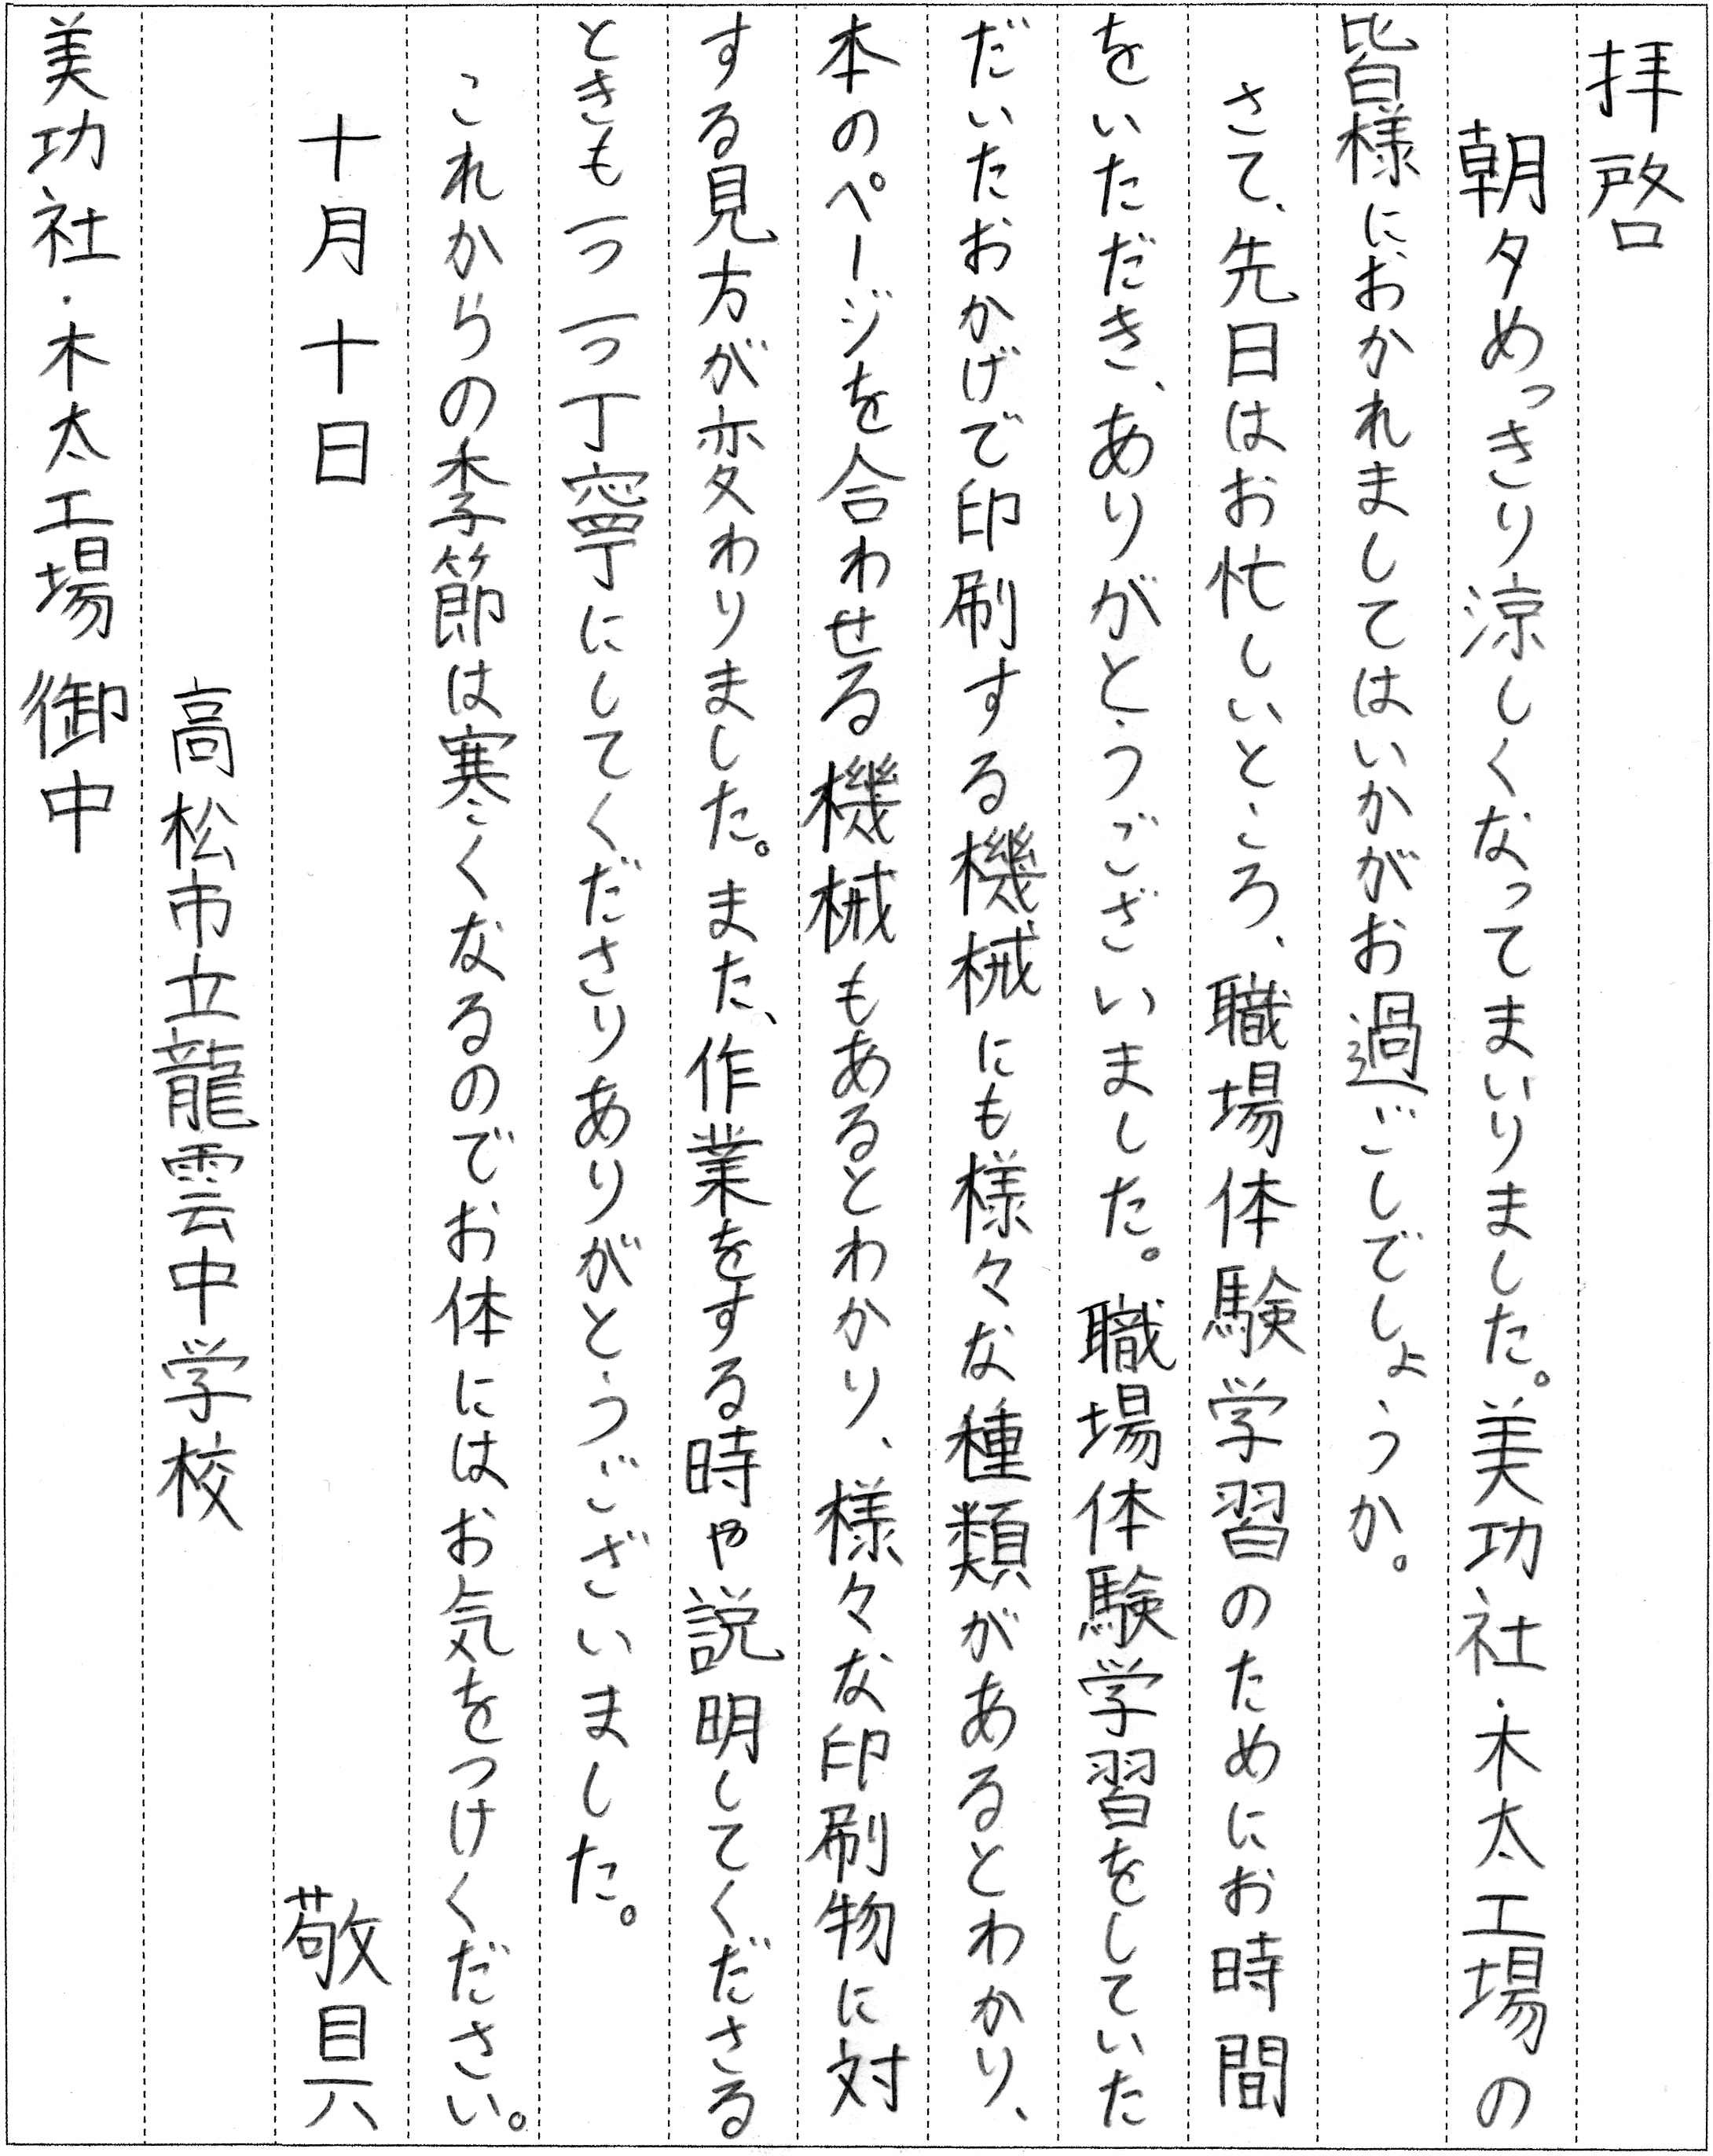 拝啓
朝夕めっきり涼しくなってまいりました。美功社・木太工場の
皆様におかれましてはいかがお過ごしでしょうか。
さて、先日はお忙しいところ、職場体験学習のためにお時間
をいただき、ありがとうございました。職場体験学習をしていた
だいたおかげで印刷する機械にも様々な種類があるとわかり、
本のページを合わせる機械もあるとわかり、様々な印刷物に対
する見方が変わりました。また、作業をする時や説明してくださる
ときも一つ一つ丁寧にしてくださりありがとうございました。
これからの季節は寒くなるのでお体にはお気をつけください。
十月十日 敬具
高松市立龍雲中学校
美功社・木太工場 御中